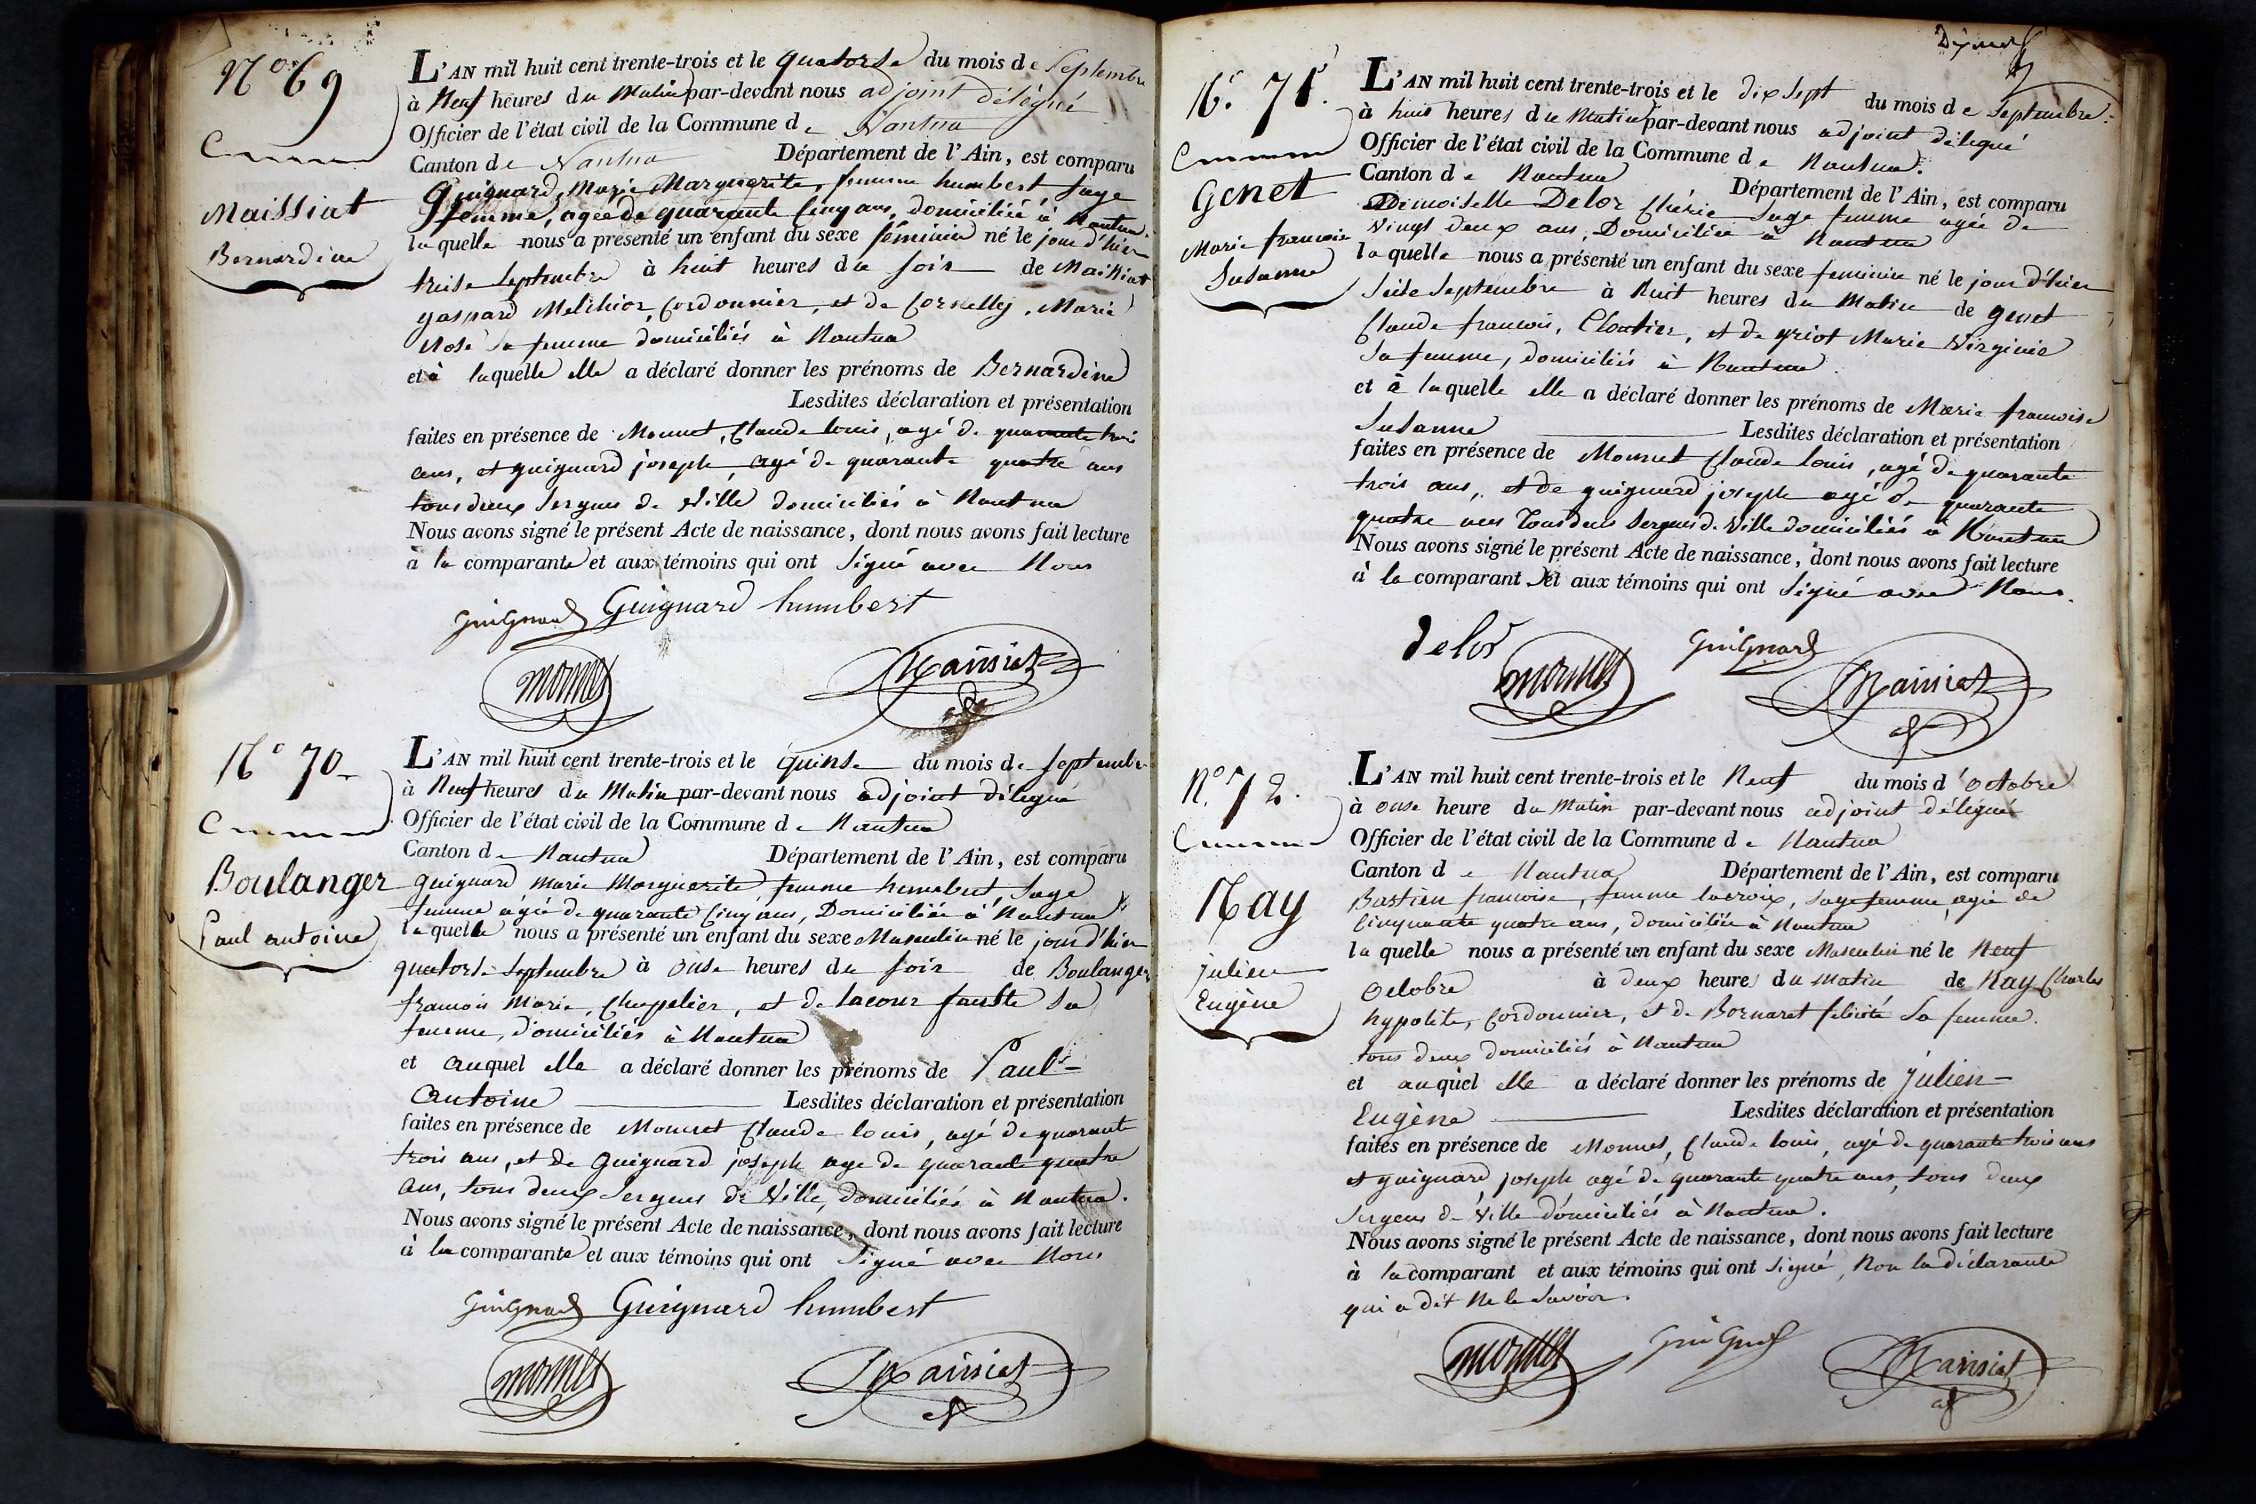 N° 69
Maissiat
Bernardine
L'AN mil huit cent trente-trois et le quatorse du mois de Septembre
à Neuf heures du Matin par-devant nous adjoint délégué
Officier de l'état civil de la Commune de Nantua
Canton de Nantua Département de l'Ain, est comparu
Guignard, Marie Marguerite, femme humbert Sage
femme, agée de quarante Cinq ans, domiciliée à Nantua.
laquelle nous a présenté un enfant du sexe féminin né le jour d'hier
treise Septembre à huit heures du soir de Maissiat
gaspard Melchior, Cordonnier, et de Cornelly, Marie
Rose sa femme domiciliés à Nantua
et à laquelle elle a déclaré donner les prénoms de Bernardine
Lesdites déclaration et présentation
faites en présence de Monnet, Claude louis, agé de quarante trois
ans, et guignard joseph, agé de quarante quatre ans
tous deux Sergens de Ville domiciliés à Nantua
Nous avons signé le présent Acte de naissance, dont nous avons fait lecture
à la comparante et aux témoins qui ont Signé avec Nous
Guignard Guignard humbert
monnet Maissiat
N° 70
Boulanger
Paul antoine
L'AN mil huit cent trente-trois et le quinse du mois de septembre
à Neuf heures du Matin par-devant nous adjoint délégué
Officier de l'état civil de la Commune de Nantua
Canton de Nantua Département de l'Ain, est comparu
guignard Marie Marguerite femme humbert, Sage
femme agée de quarante Cinq ans, Domiciliée à Nantua
laquelle nous a présenté un enfant du sexe Masculin né le jour d'hier
quatorse Septembre à onse heures du soir de Boulanger
françois Marie, Chapelier, et de lacour fauste sa
femme, domiciliés à Nantua
et auquel elle a déclaré donner les prénoms de Paul-
antoine Lesdites déclaration et présentation
faites en présence de Monnet Claude louis, agé de quarante
trois ans, et de Guignard joseph age de quarante quatre
ans, tous deux Sergens de Ville, domiciliés à Nantua.
Nous avons signé le présent Acte de naissance, dont nous avons fait lecture
à la comparante et aux témoins qui ont Signé avec Nous
Guignard Guignard humbert
monnet Maissiat
N° 71.
Genet
Marie francoise
Susanne
L'AN mil huit cent trente-trois et le dix Sept du mois de Septembre.
à huit heures du Matin par-devant nous adjoint délégué
Officier de l'état civil de la Commune de Nantua.
Canton de Nantua Département de l'Ain, est comparu
Demoiselle Delor Chérie Sage femme agée de
vingt deux ans, Domiciliée à Nantua
laquelle nous a présenté un enfant du sexe feminin né le jour d'hier
Seise Septembre à Huit heures du Matin de genet
Claude francois, Cloutier, et de griot Marie Virginie
sa femme, domiciliés à Nantua
et à laquelle elle a déclaré donner les prénoms de Marie francoise
Susanne Lesdites déclaration et présentation
faites en présence de Monnet Claude louis, agé de quarante
trois ans, et de guignard joseph agé de quarante
quatre ans Tous deux Sergens de Ville domiciliés à Nantua
Nous avons signé le présent Acte de naissance, dont nous avons fait lecture
à la comparant et aux témoins qui ont Signé avec Nous.
delor Guignard
monnet Maissiat
N° 72.
Ray
julien
Eugène
L'AN mil huit cent trente-trois et le Neuf du mois d'octobre
à onse heure du Matin par-devant nous adjoint délégué
Officier de l'état civil de la Commune de Nantua
Canton de Nantua Département de l'Ain, est comparu
Bastien francoise, femme lacroix, sage femme, agée de
Cinquante quatre ans, domiciliée à Nantua
laquelle nous a présenté un enfant du sexe Masculin né le Neuf
octobre à deux heure du Matin de Ray Charles
hypolite, Cordonnier, et de Bornaret felicité sa femme.
tous deux domiciliés à Nantua
et auquel elle a déclaré donner les prénoms de julien-
Eugène Lesdites déclaration et présentation
faites en présence de Monnet, Claude louis, agé de quarante trois ans
et guignard joseph agé de quarante quatre ans, tous deux
sergens de Ville domiciliés à Nantua.
Nous avons signé le présent Acte de naissance, dont nous avons fait lecture
à la comparant et aux témoins qui ont Signé, Non la déclarante
qui a dit ne le Savoir.
monnet Guignard Maissiat